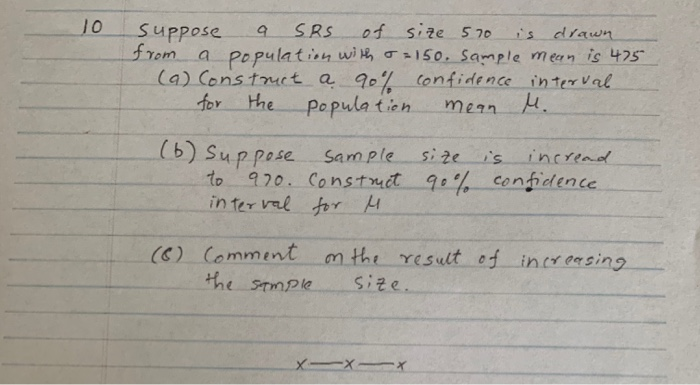 10 Suppose a SRS of size 570 is drawn
from a population with σ=150. Sample mean is 475
(a) Construct a 90% confidence interval
for the population mean μ.
(b) Suppose sample size is incread
to 970. Construct 90% confidence
interval for μ
(c) Comment on the result of increasing
the sample size.
x—x—x